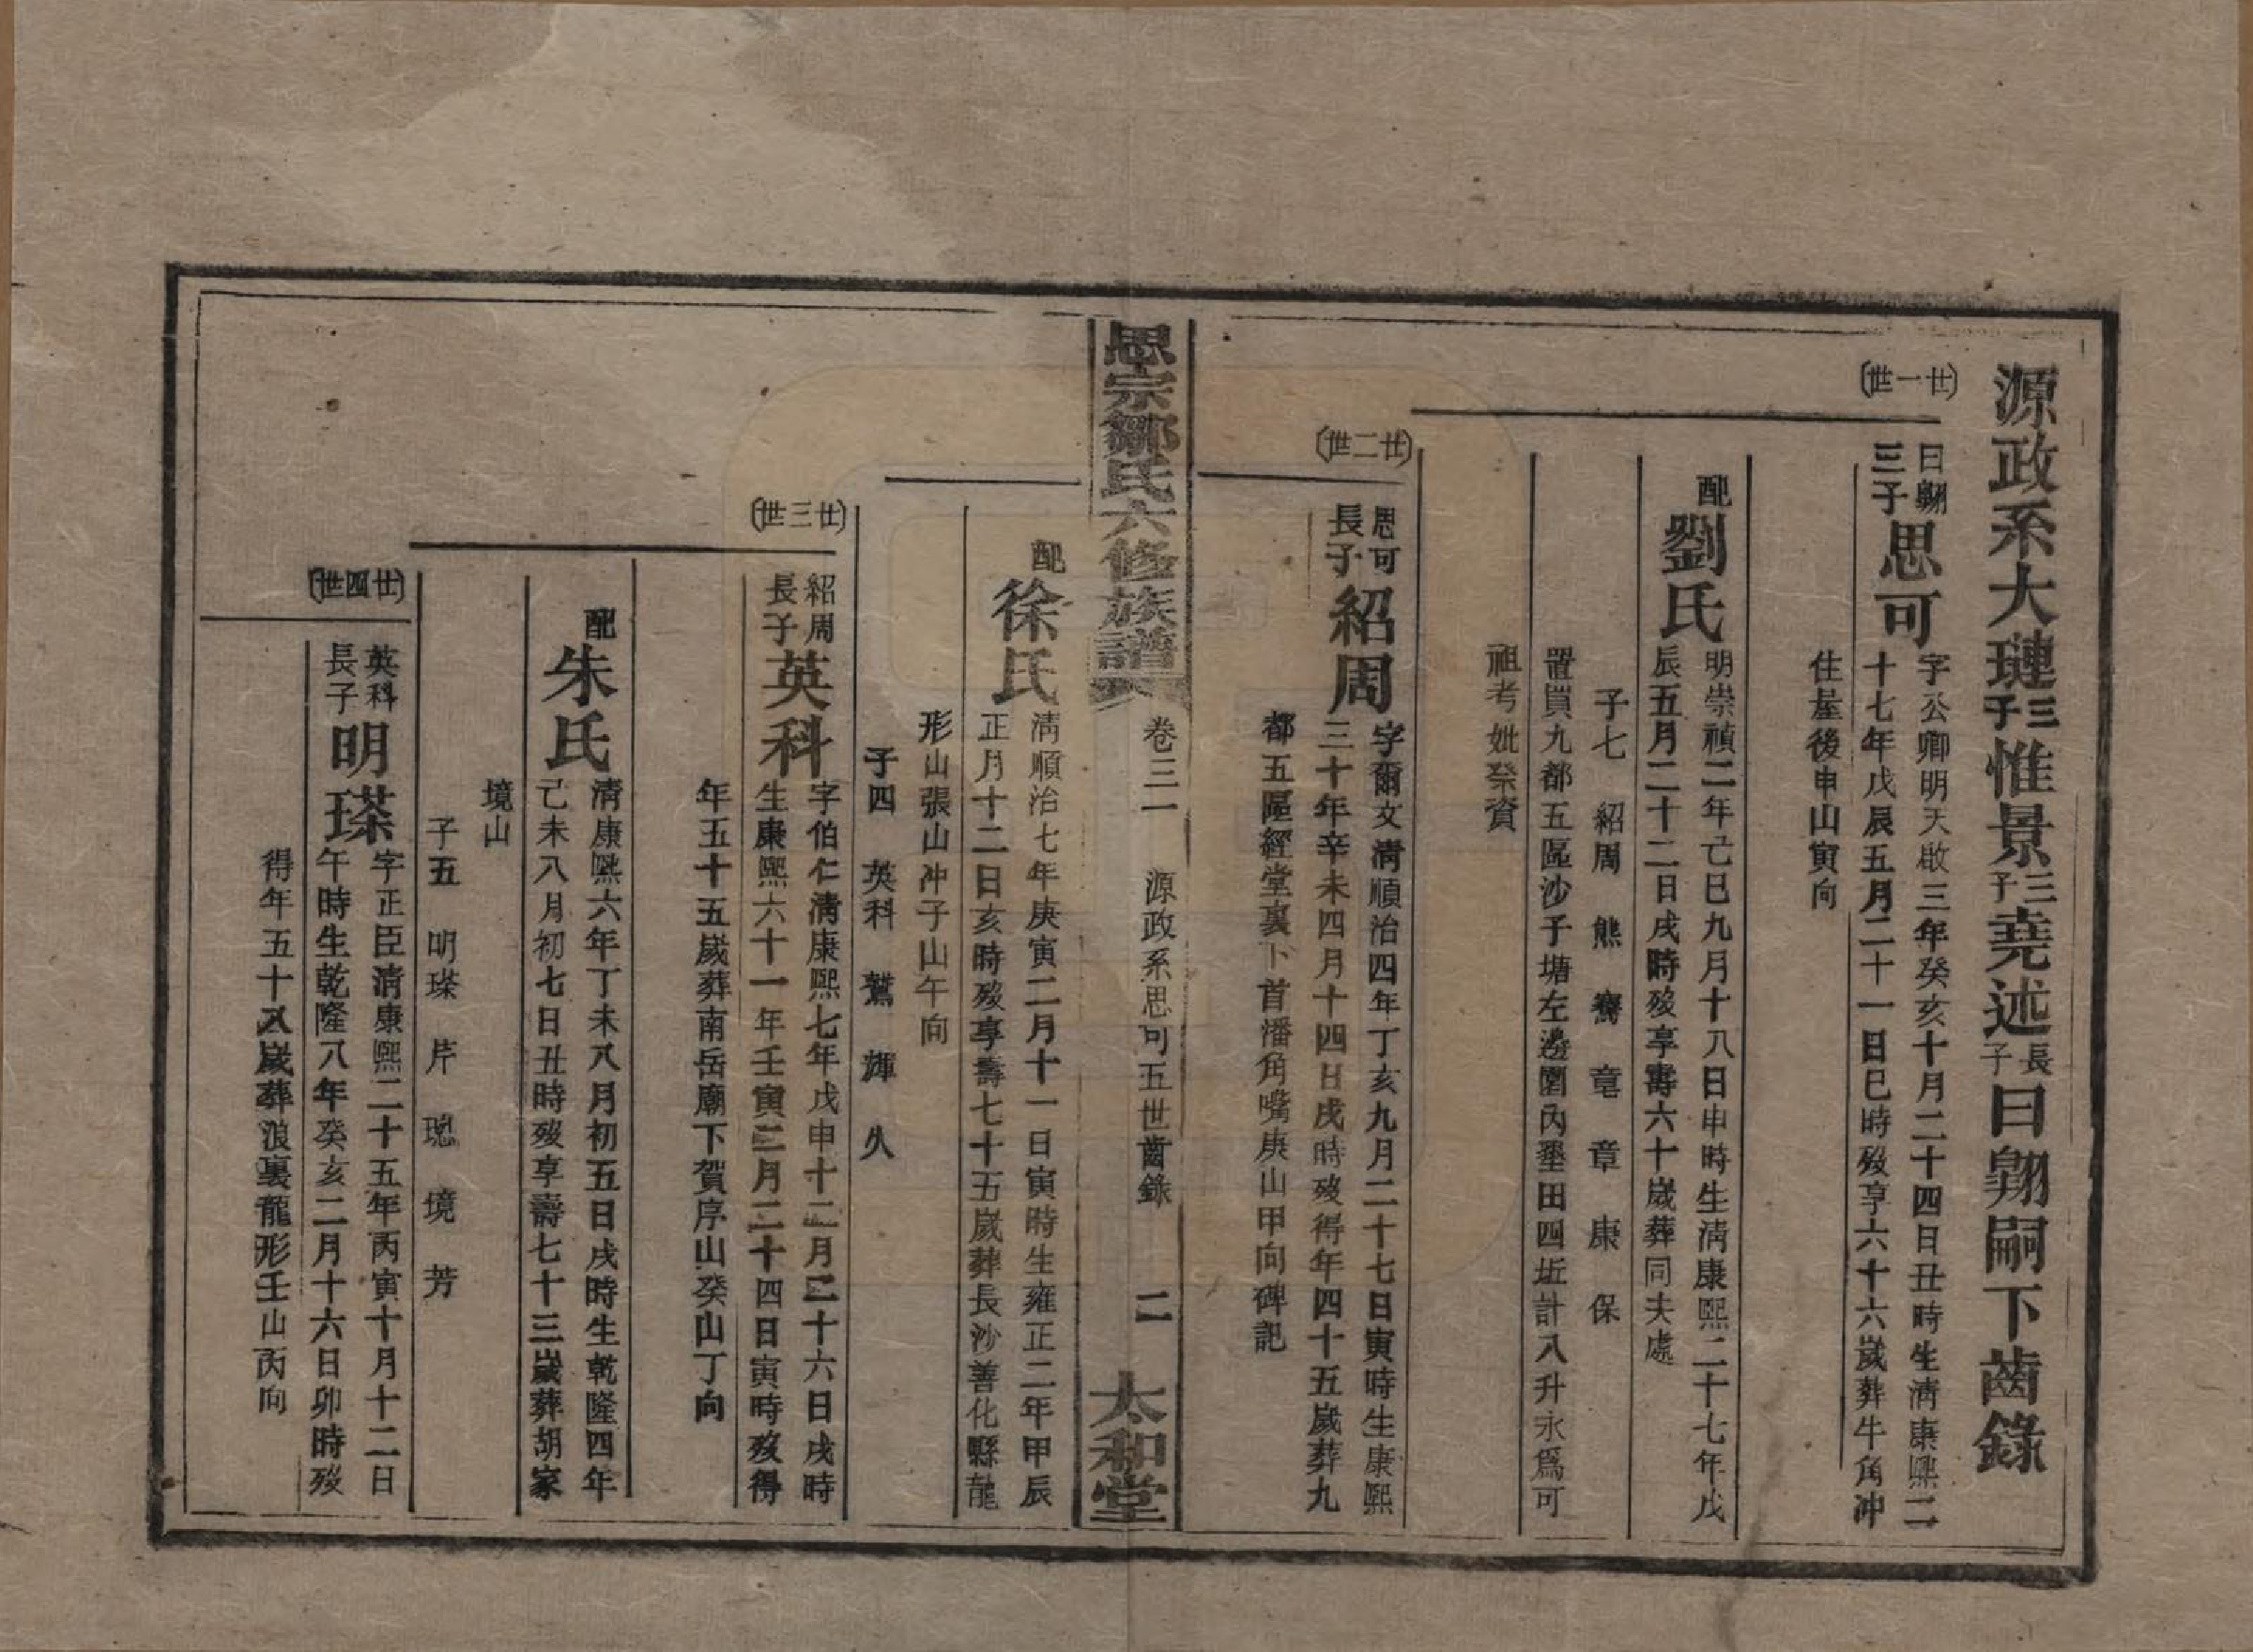 源政系大璉三子惟景三子堯述長子曰翱嗣下齒錄
廿一世
曰翱三子
思可
字公卿明天啟三年癸亥十月二十四日丑時生清康熙二
十七年戊辰五月二十一日巳時歿享六十六歲葬牛角冲
住屋後申山寅向
配劉氏
明崇禎二年己巳九月十八日申時生清康熙二十七年戊
辰五月二十二日戌時歿享壽六十歲葬同夫處
子七 紹周 熊 騫 竜 章 康 保
置買九都五區沙子塘左邊圍內墾田四坵計八升永爲可
祖考妣祭資
廿二世
思可長子
紹周
字爾文清順治四年丁亥九月二十七日寅時生康熙
三十年辛未四月十四日戌時歿得年四十五歲葬九
都五區經堂裏下首潘角嘴庚山甲向碑記
思宗鄒氏六修族譜
卷三一 源政系思可五世齒錄 二
太和堂
配徐氏
清順治七年庚寅二月十一日寅時生雍正二年甲辰
正月十二日亥時歿享壽七十五歲葬長沙善化縣龍
形山張山冲子山午向
子四 英科 鵞 輝 久
廿三世
紹周長子
英科
字伯仁清康熙七年戊申十二月二十六日戌時
生康熙六十一年壬寅三月二十四日寅時歿得
年五十五歲葬南岳廟下賀序山癸山丁向
配朱氏
清康熙六年丁未八月初五日戌時生乾隆四年
己未八月初七日丑時歿享壽七十三歲葬胡家
境山
子五 明璨 芹 璁 境 芳
廿四世
英科長子
明璨
字正臣清康熙二十五年丙寅十月十二日
午時生乾隆八年癸亥二月十六日卯時歿
得年五十八歲葬浪裏龍形壬山丙向